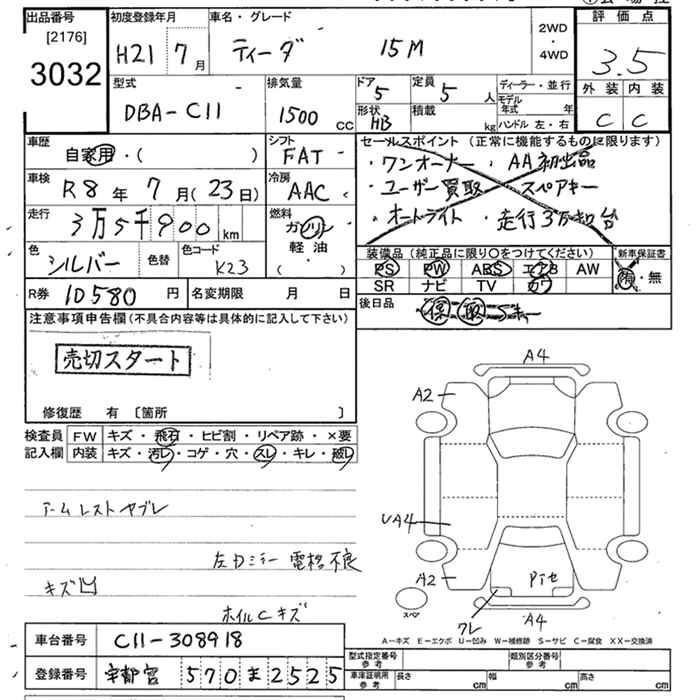 出品番号 [2176] 3032
初度登録年月 H21 7月
車名・グレード ティーダ 15M
2WD ・ 4WD
評価点 3.5
外装 内装
C C
型式 DBA-C11
排気量 1500 CC
ドア 5
定員 5 人
形状 HB
積載 kg
ディーラー・並行
モデル年式 年
ハンドル 左・右
車歴 自家用・( )
シフト FAT
車検 R8年 7月(23日)
冷房 AAC
走行 3万5千900 km
燃料 ガソリン 軽油 ( )
色 シルバー 色替
色コード K23
R券 10580 円
名変期限 月 日
セールスポイント(正常に機能するものに限ります)
・ワンオーナー ・AA初出品
・ユーザー買取 ・スペアキー
・オートライト ・走行3万キロ台
装備品(純正品に限り○をつけてください)
PS PW ABS エアB AW
SR ナビ TV カワ
新車保証書 有・無
後日品 保 取 Sキー
注意事項申告欄(不具合内容等は具体的に記入して下さい)
売切スタート
修復歴 有 〔箇所 〕
検査員記入欄
FW キズ・飛石・ヒビ割・リペア跡・×要
内装 キズ・汚レ・コゲ・穴・スレ・キレ・破レ
アームレストヤブレ
左カミラー 電格不良
キズ凹
ホイルCキズ
A4
A2
UA4
A2
Pセ
ワレ
A4
スペア
A-キズ E-エクボ U-凹み W-補修跡 S-サビ C-腐食 XX-交換済
車台番号 C11-308918
登録番号 宇都宮 570 ま 2525
型式指定番号 参考
類別区分番号 参考
車庫証明用 参考 長さ cm 幅 cm 高さ cm